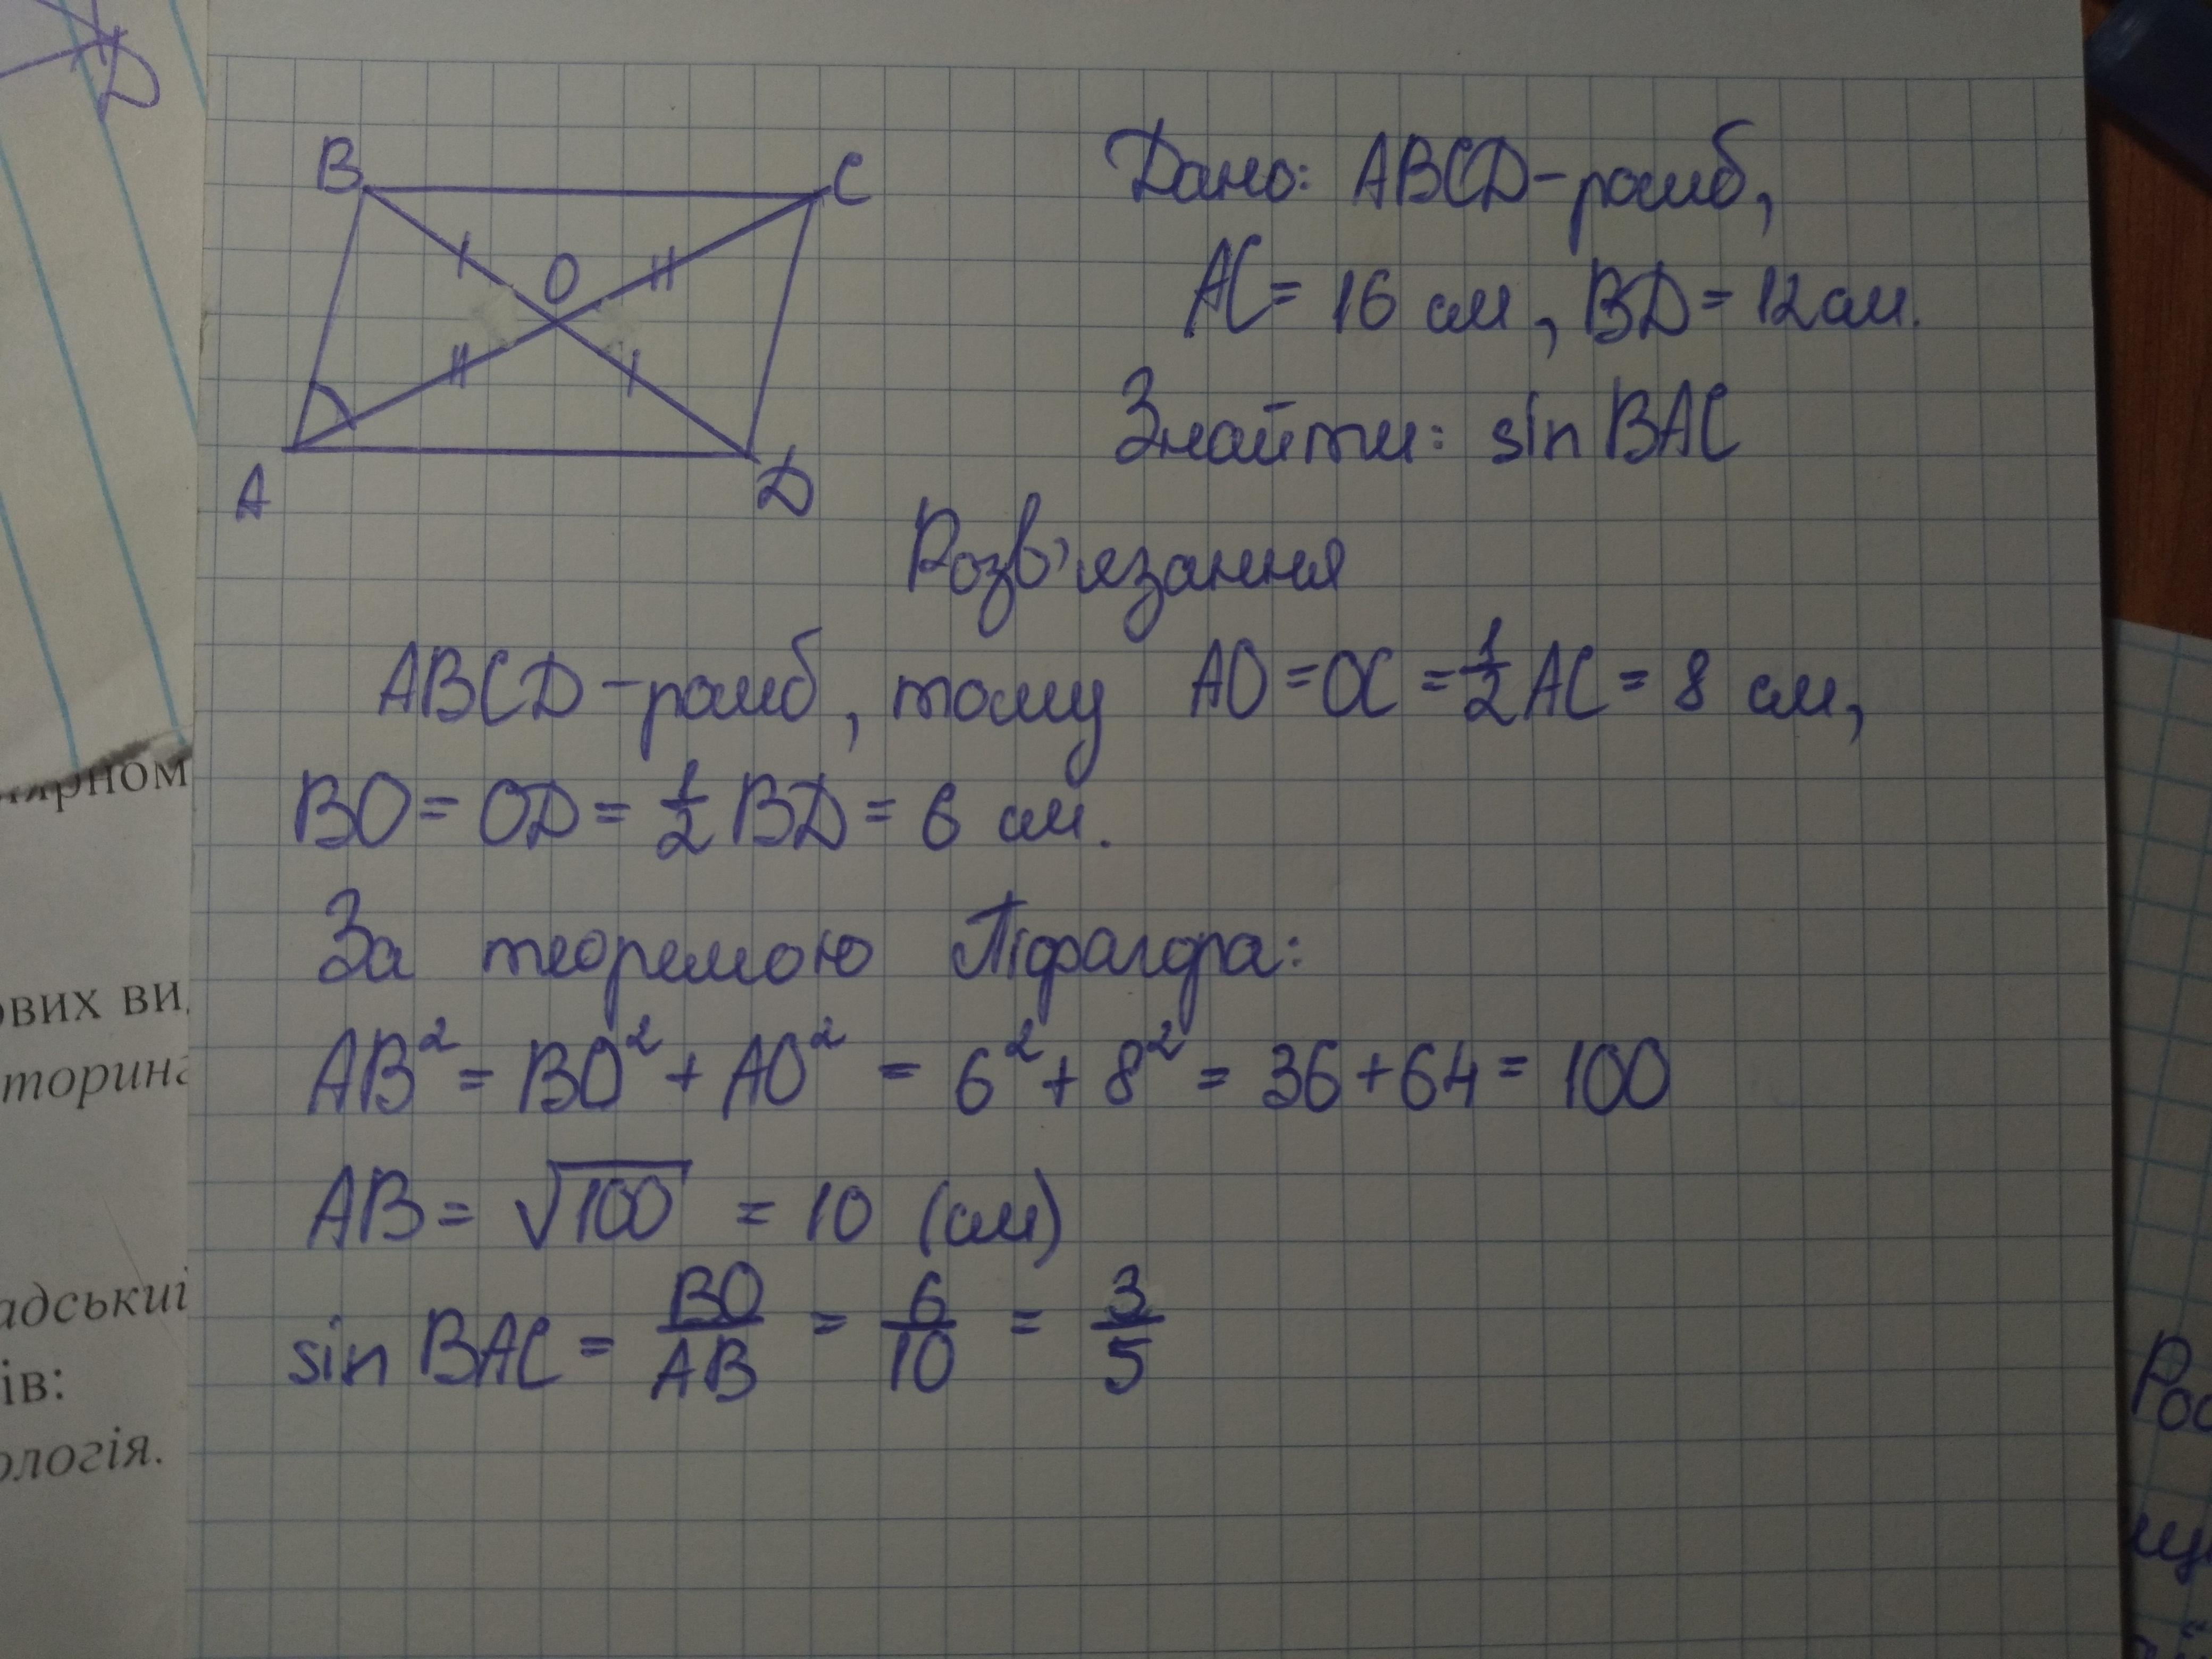 D
B
C
O
A
D
Дано: ABCD-ромб,
AC = 16 см, BD = 12 см.
Знайти: sin BAC
Розв'язання
ABCD - ромб, тому AO = OC = 1/2 AC = 8 см,
BO = OD = 1/2 BD = 6 см.
За теоремою Піфагора:
AB² = BO² + AO² = 6² + 8² = 36 + 64 = 100
AB = √100 = 10 (см)
sin BAC = BO/AB = 6/10 = 3/5
ових ви
торина
адський
ів:
ологія.
Роз